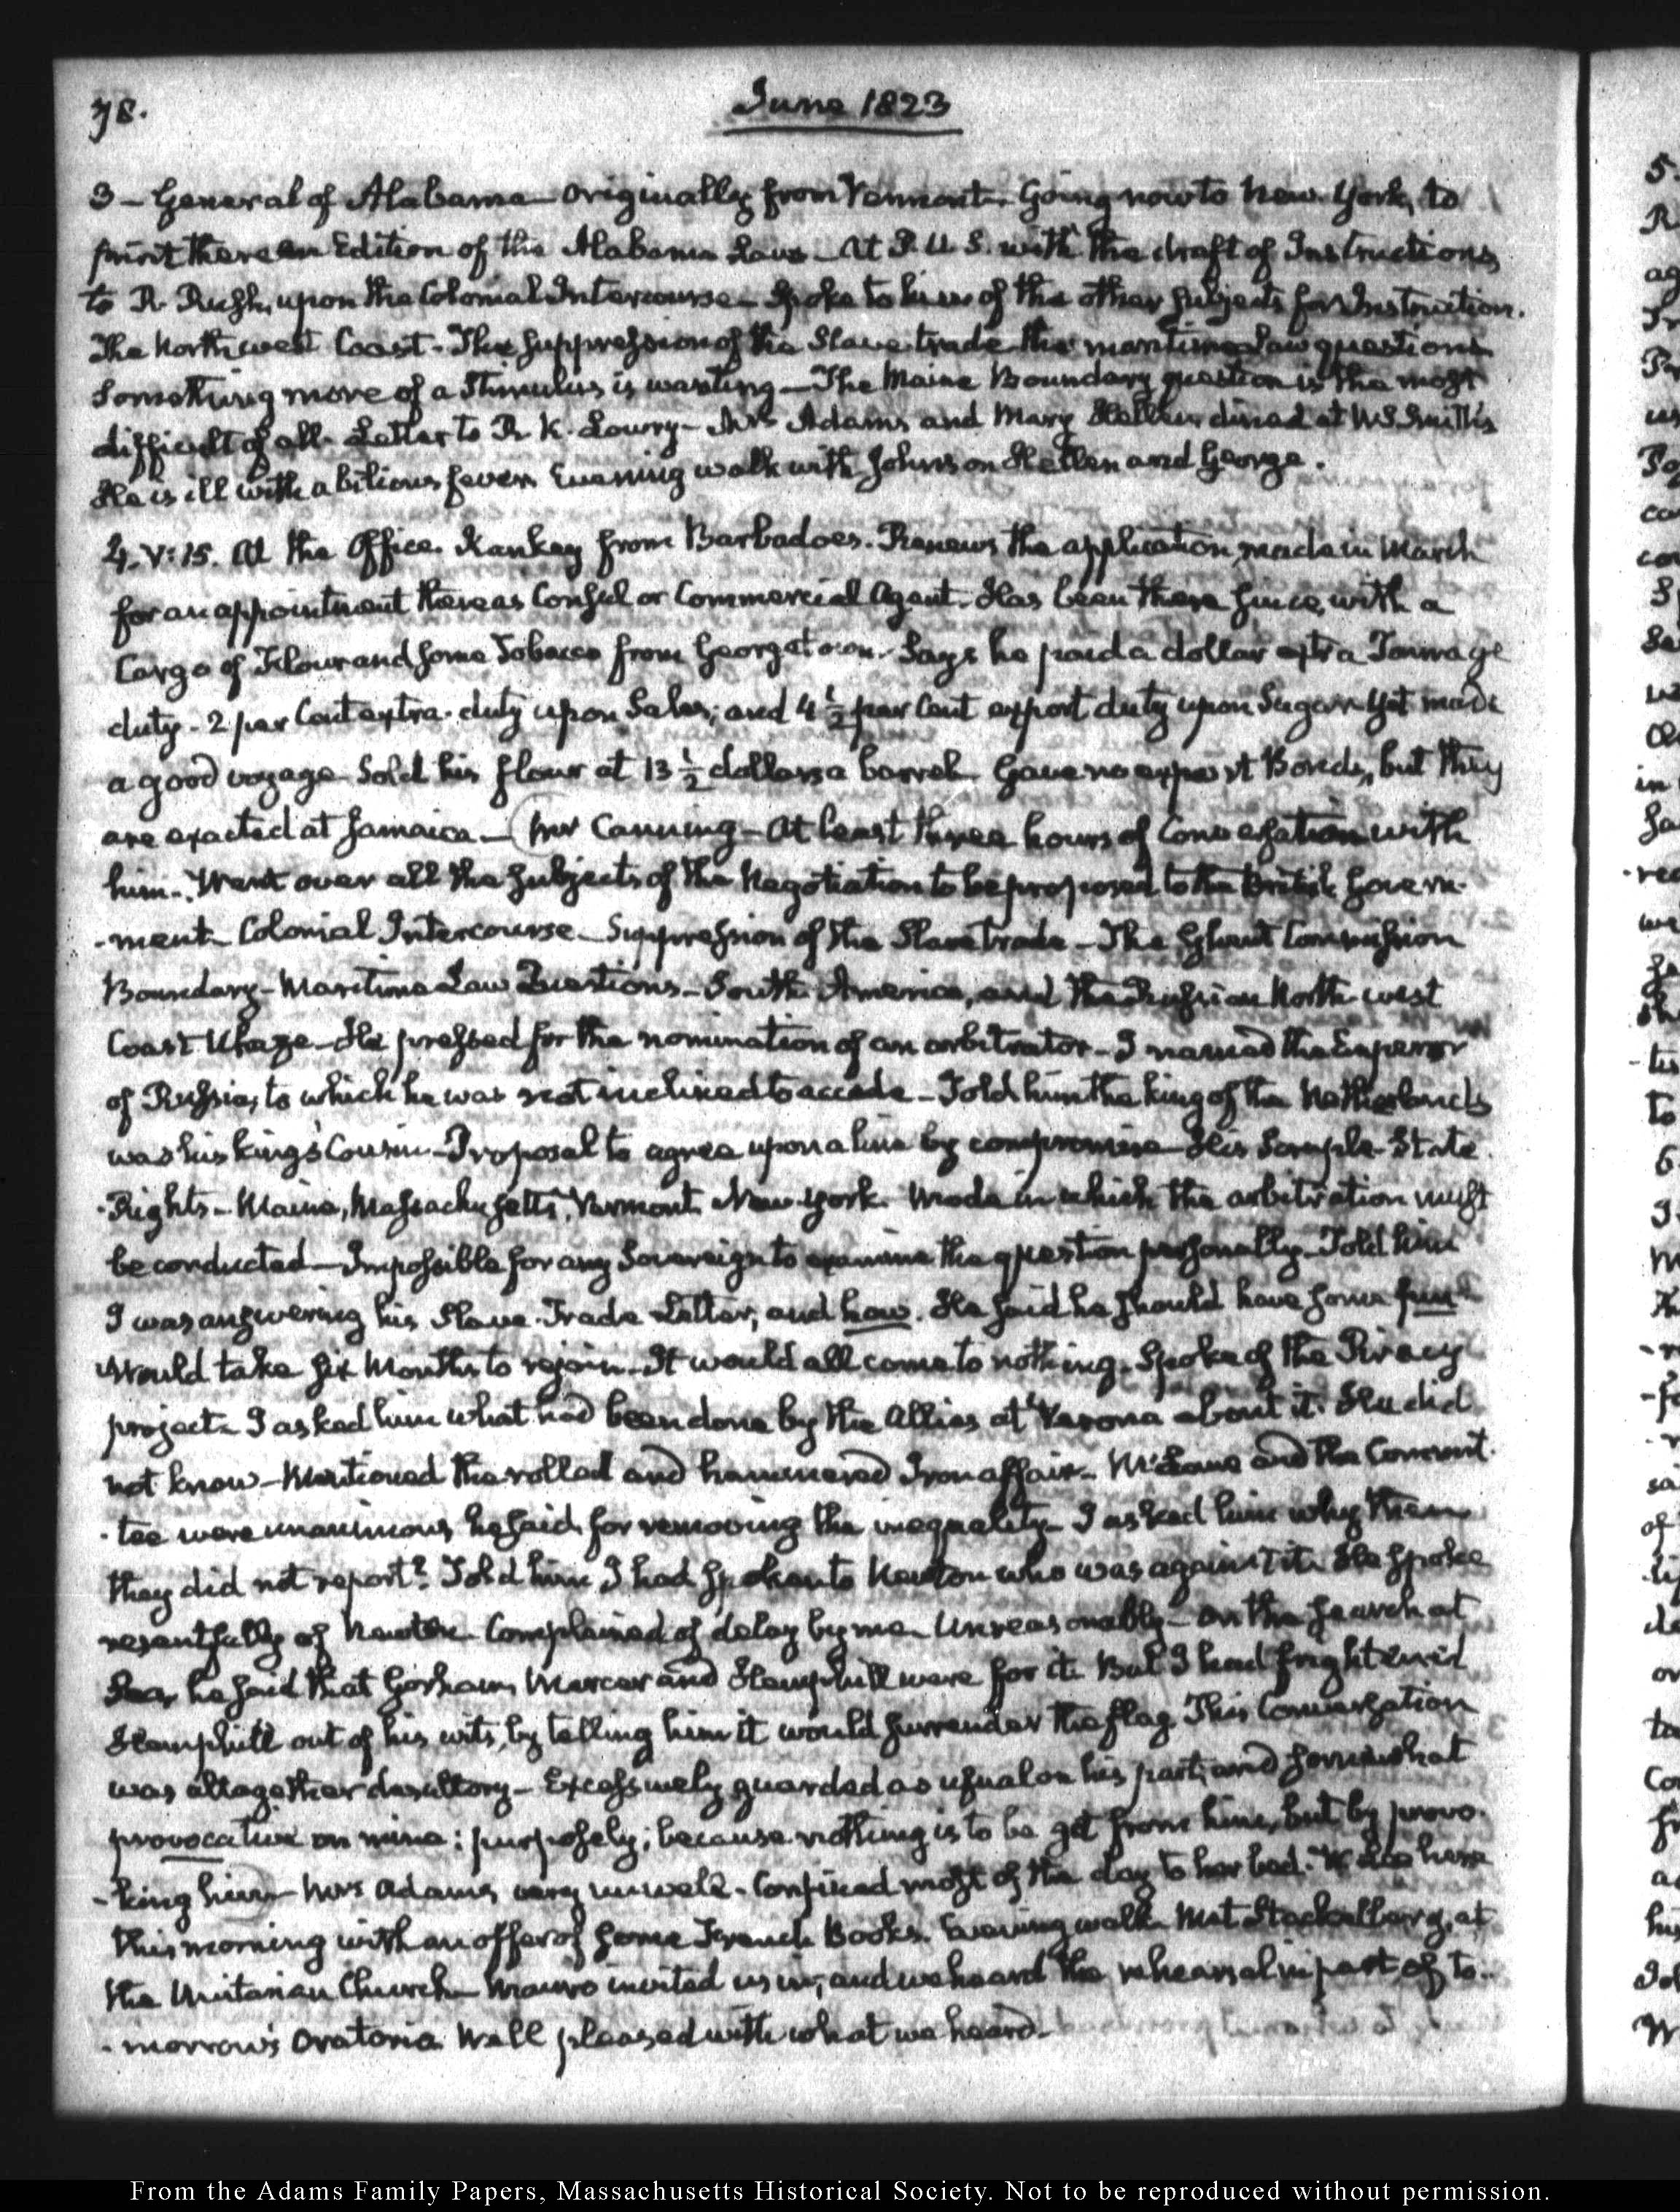 78.
June 1823
3 — General of Alabama — originally from Vermont. Going now to New York, to
print there an Edition of the Alabama Laws — At P. U. S. with the draft of Instructions
to R. Rush, upon the Colonial Intercourse — Spoke to him of the other subjects for Instruction.
The North west Coast — The suppression of the Slave trade the maritime Law questions
Something more of a stimulus is wanting — The Maine Boundary question is the most
difficult of all. Letter to R. K. Lowry — Mrs Adams and Mary Hellen dined at W. S. Smith's
He is ill with a bilious fever. Evening walk with Johnson Hellen and George.
4. V: 15. At the Office. Kankey from Barbadoes. Renews the application, made in March
for an appointment there as Consul or Commercial Agent. Has been there since, with a
Cargo of Flour and some Tobacco from Georgetown. Says he paid a dollar extra Tonnage
duty - 2 per Cent extra duty upon Sales; and 4 1/2 per Cent export duty upon Sugar. Yet made
a good voyage Sold his flour at 13 1/2 dollars a barrel. Gave no export Bonds, but they
are exacted at Jamaica — (Mr Canning — At least three hours of Conversation with
him. Went over all the subjects of the Negotiation to be proposed to the British Govern-
-ment. Colonial Intercourse — Suppression of the Slave trade — The Ghent Commission
Boundary — Maritime Law Questions — South America, and the Russian North-west
Coast Ukaze — He pressed for the nomination of an arbitrator — I named the Emperor
of Russia, to which he was not inclined to accede — Told him the king of the Netherlands
was his king's Cousin — Proposal to agree upon a line by compromise — His Scruple State
-Rights — Maine, Massachusetts, Vermont New York. Mode in which the arbitration must
be conducted — Impossible for any Sovereign to examine the question personally — Told him
I was answering his Slave-Trade Letter, and how. He said he should have some fun
Would take six Months to rejoin — It would all come to nothing. Spoke of the Piracy
project — I asked him what had been done by the Allies at Verona about it. He did
not know — Mentioned the rolled and hammered Iron affair — McLane and the Commit-
-tee were unanimous, he said, for removing the inequality — I asked him why then
they did not report? Told him, I had spoken to Newton who was against it. He spoke
resentfully of Newton Complained of delay by me — Unreasonably — On the search at
Sea, he said that Gorham, Mercer and Hemphill were for it. But I had frightened
Hemphill out of his wits, by telling him it would surrender the flag. This Conversation
was altogether desultory — Excessively guarded as usual on his part; and somewhat
provocative on mine: purposely; because nothing is to be got from him, but by provo-
-king him) Mrs Adams very unwell. Confined most of the day to her bed. here
this morning with an offer of some French Books. Evening walk. Met Stackelberg, at
the Unitarian Church — Mauro invited us in; and we heard the rehearsal in part of to-
-morrow's Oratorio. Well pleased with what we heard.
From the Adams Family Papers, Massachusetts Historical Society. Not to be reproduced without permission.